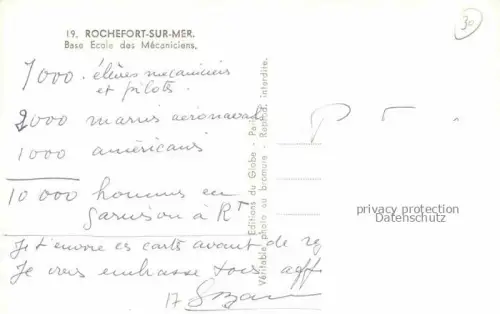 19. ROCHEFORT-SUR-MER.
Base Ecole des Mécaniciens.
30
7000 élèves mecaniciens
et pilots.
2000 marins aeronavale
1000 américains
10 000 hommes en
garnison à RT
Je t'envoie ces carts avant de
Je vous embrasse tous
17
Editions du Globe - Paris
Véritable photo au bromure - Reprod. interdite.
privacy protection
Datenschutz